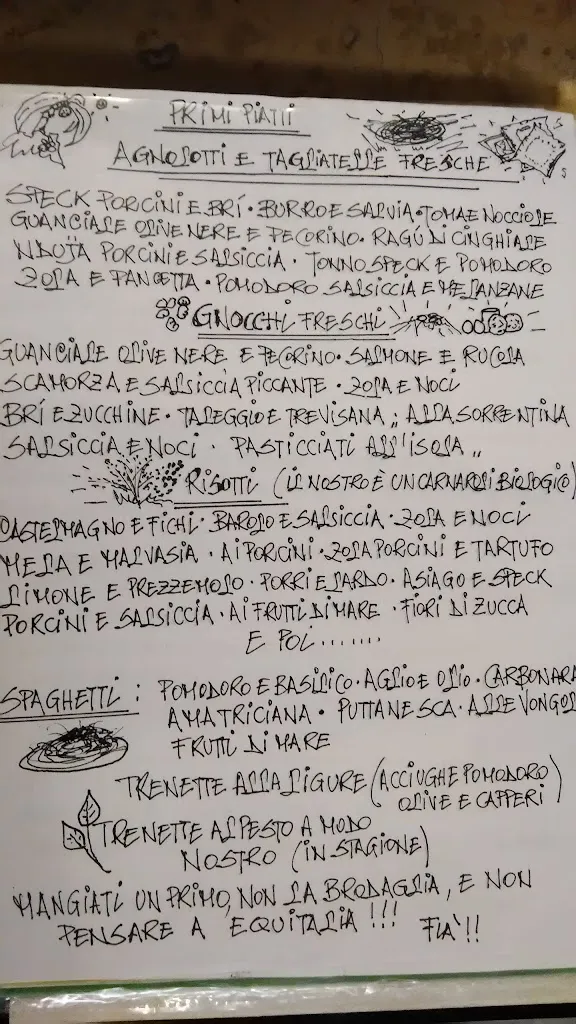 PRIMI PIATTI
AGNOLOTTI E TAGLIATELLE FRESCHE
SPECK PORCINI E BRÍ · BURRO E SALVIA · TOMA E NOCCIOLE
GUANCIALE OLIVE NERE E PECORINO · RAGÚ DI CINGHIALE
NDUJA PORCINI E SALSICCIA · TONNO SPECK E POMODORO
ZOLA E PANCETTA · POMODORO SALSICCIA E MELANZANE
GNOCCHI FRESCHI
GUANCIALE OLIVE NERE E PECORINO · SALMONE E RUCOLA
SCAMORZA E SALSICCIA PICCANTE · ZOLA E NOCI
BRÍ E ZUCCHINE · TALEGGIO E TREVISANA ,, ALLA SORRENTINA
SALSICCIA E NOCI · PASTICCIATI ALL'ISOLA ,,
RISOTTI (IL NOSTRO È UN CARNAROLI BIOLOGICO)
CASTELMAGNO E FICHI · BAROLO E SALSICCIA · ZOLA E NOCI
MELA E MALVASIA · AI PORCINI · ZOLA PORCINI E TARTUFO
LIMONE E PREZZEMOLO · PORRI E LARDO · ASIAGO E SPECK
PORCINI E SALSICCIA · AI FRUTTI DI MARE · FIORI DI ZUCCA
E POI........
SPAGHETTI : POMODORO E BASILICO · AGLIO E OLIO · CARBONARA
AMATRICIANA · PUTTANESCA · ALLE VONGOL
FRUTTI DI MARE
TRENETTE ALLA LIGURE (ACCIUGHE POMODORO
OLIVE E CAPPERI)
TRENETTE AL PESTO A MODO
NOSTRO (IN STAGIONE)
MANGIATI UN PRIMO, NON LA BRODAGLIA, E NON
PENSARE A EQUITALIA !!! FIA'!!